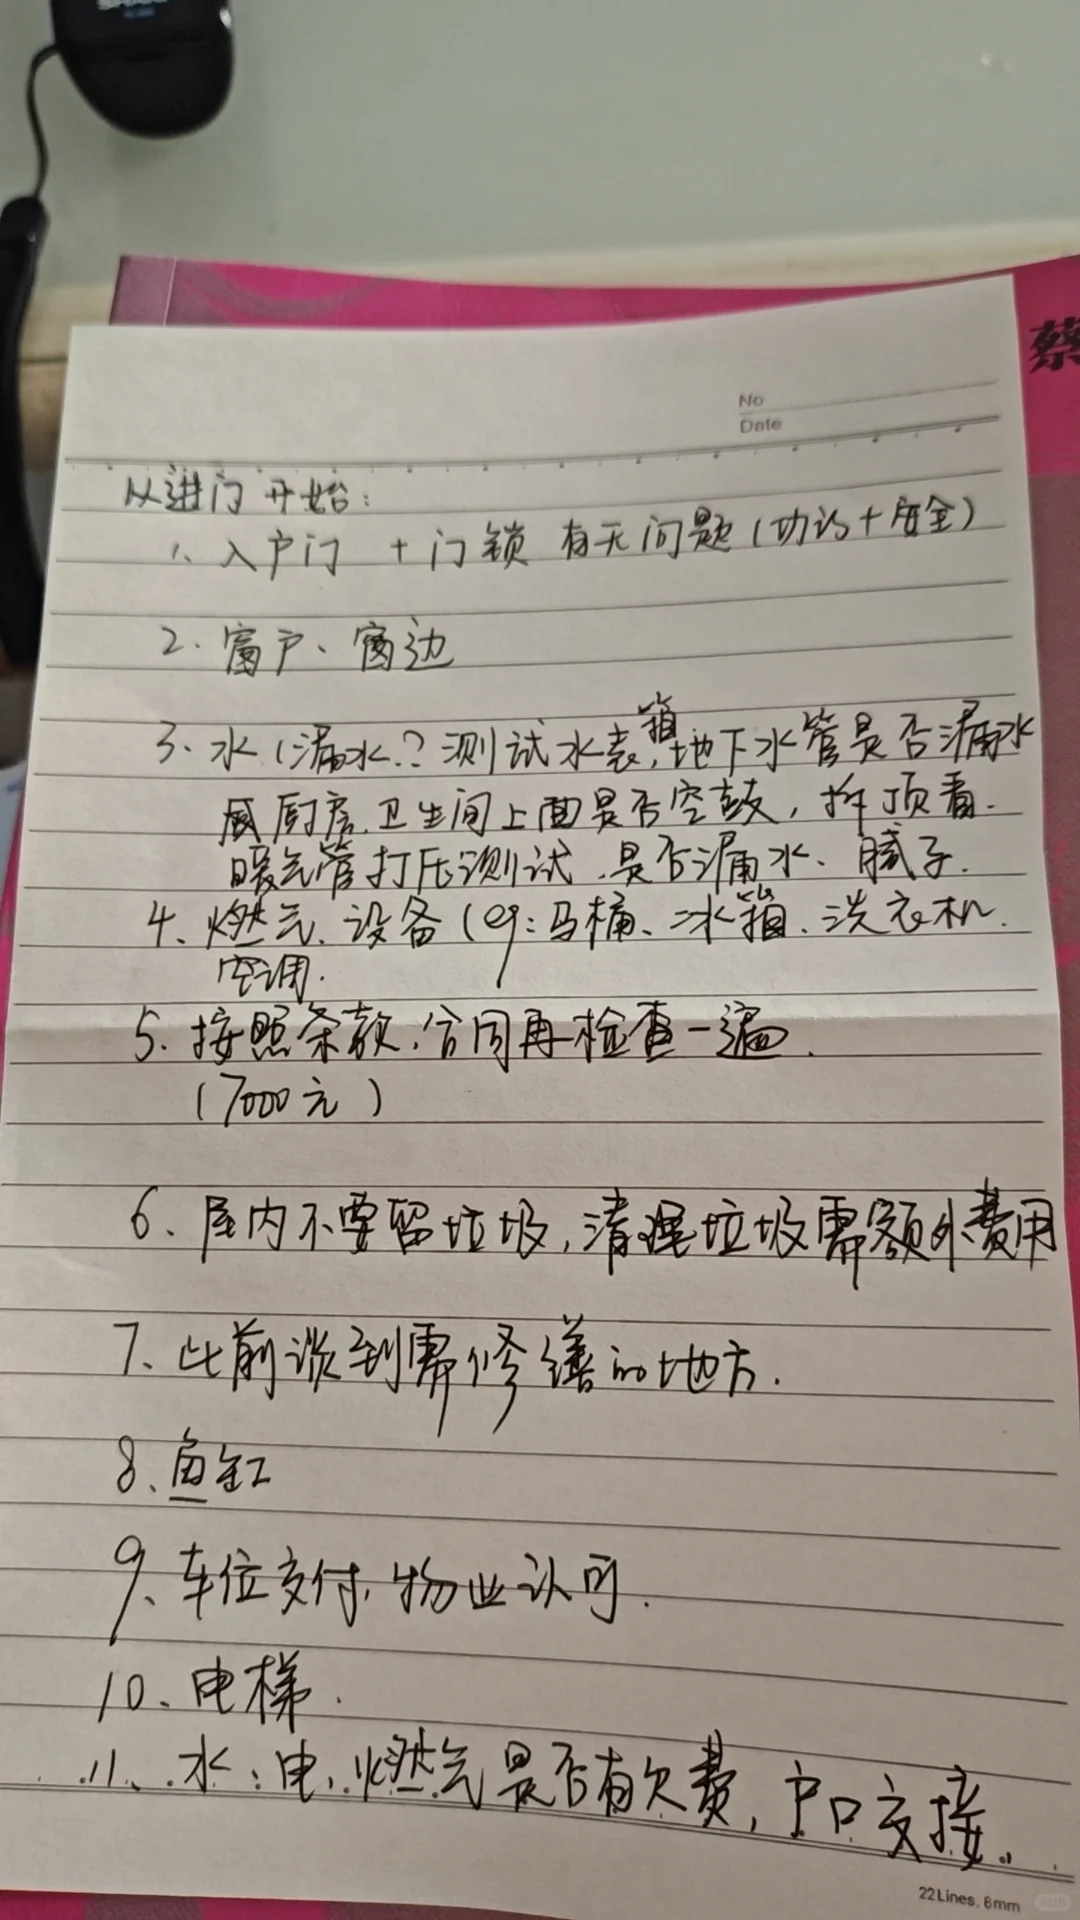 蔡
No
Date
从进门开始：
1、入户门 + 门锁 有无问题（功能+安全）
2、窗户、窗边
3、水（漏水？测试水表箱，地下水管是否漏水
厨房、卫生间上面是否空鼓，拆顶看.
暖气管打压测试、是否漏水、腻子.
4、燃气、设备（eg：马桶、冰箱、洗衣机、
空调.
5、按照条款，合同再检查一遍.
（7000元）
6、屋内不要留垃圾，清理垃圾需额外费用
7、此前谈到需修缮的地方.
8、鱼缸
9、车位交付，物业认可.
10、电梯.
11、水、电、燃气是否有欠费，户口交接.
22Lines. 8mm